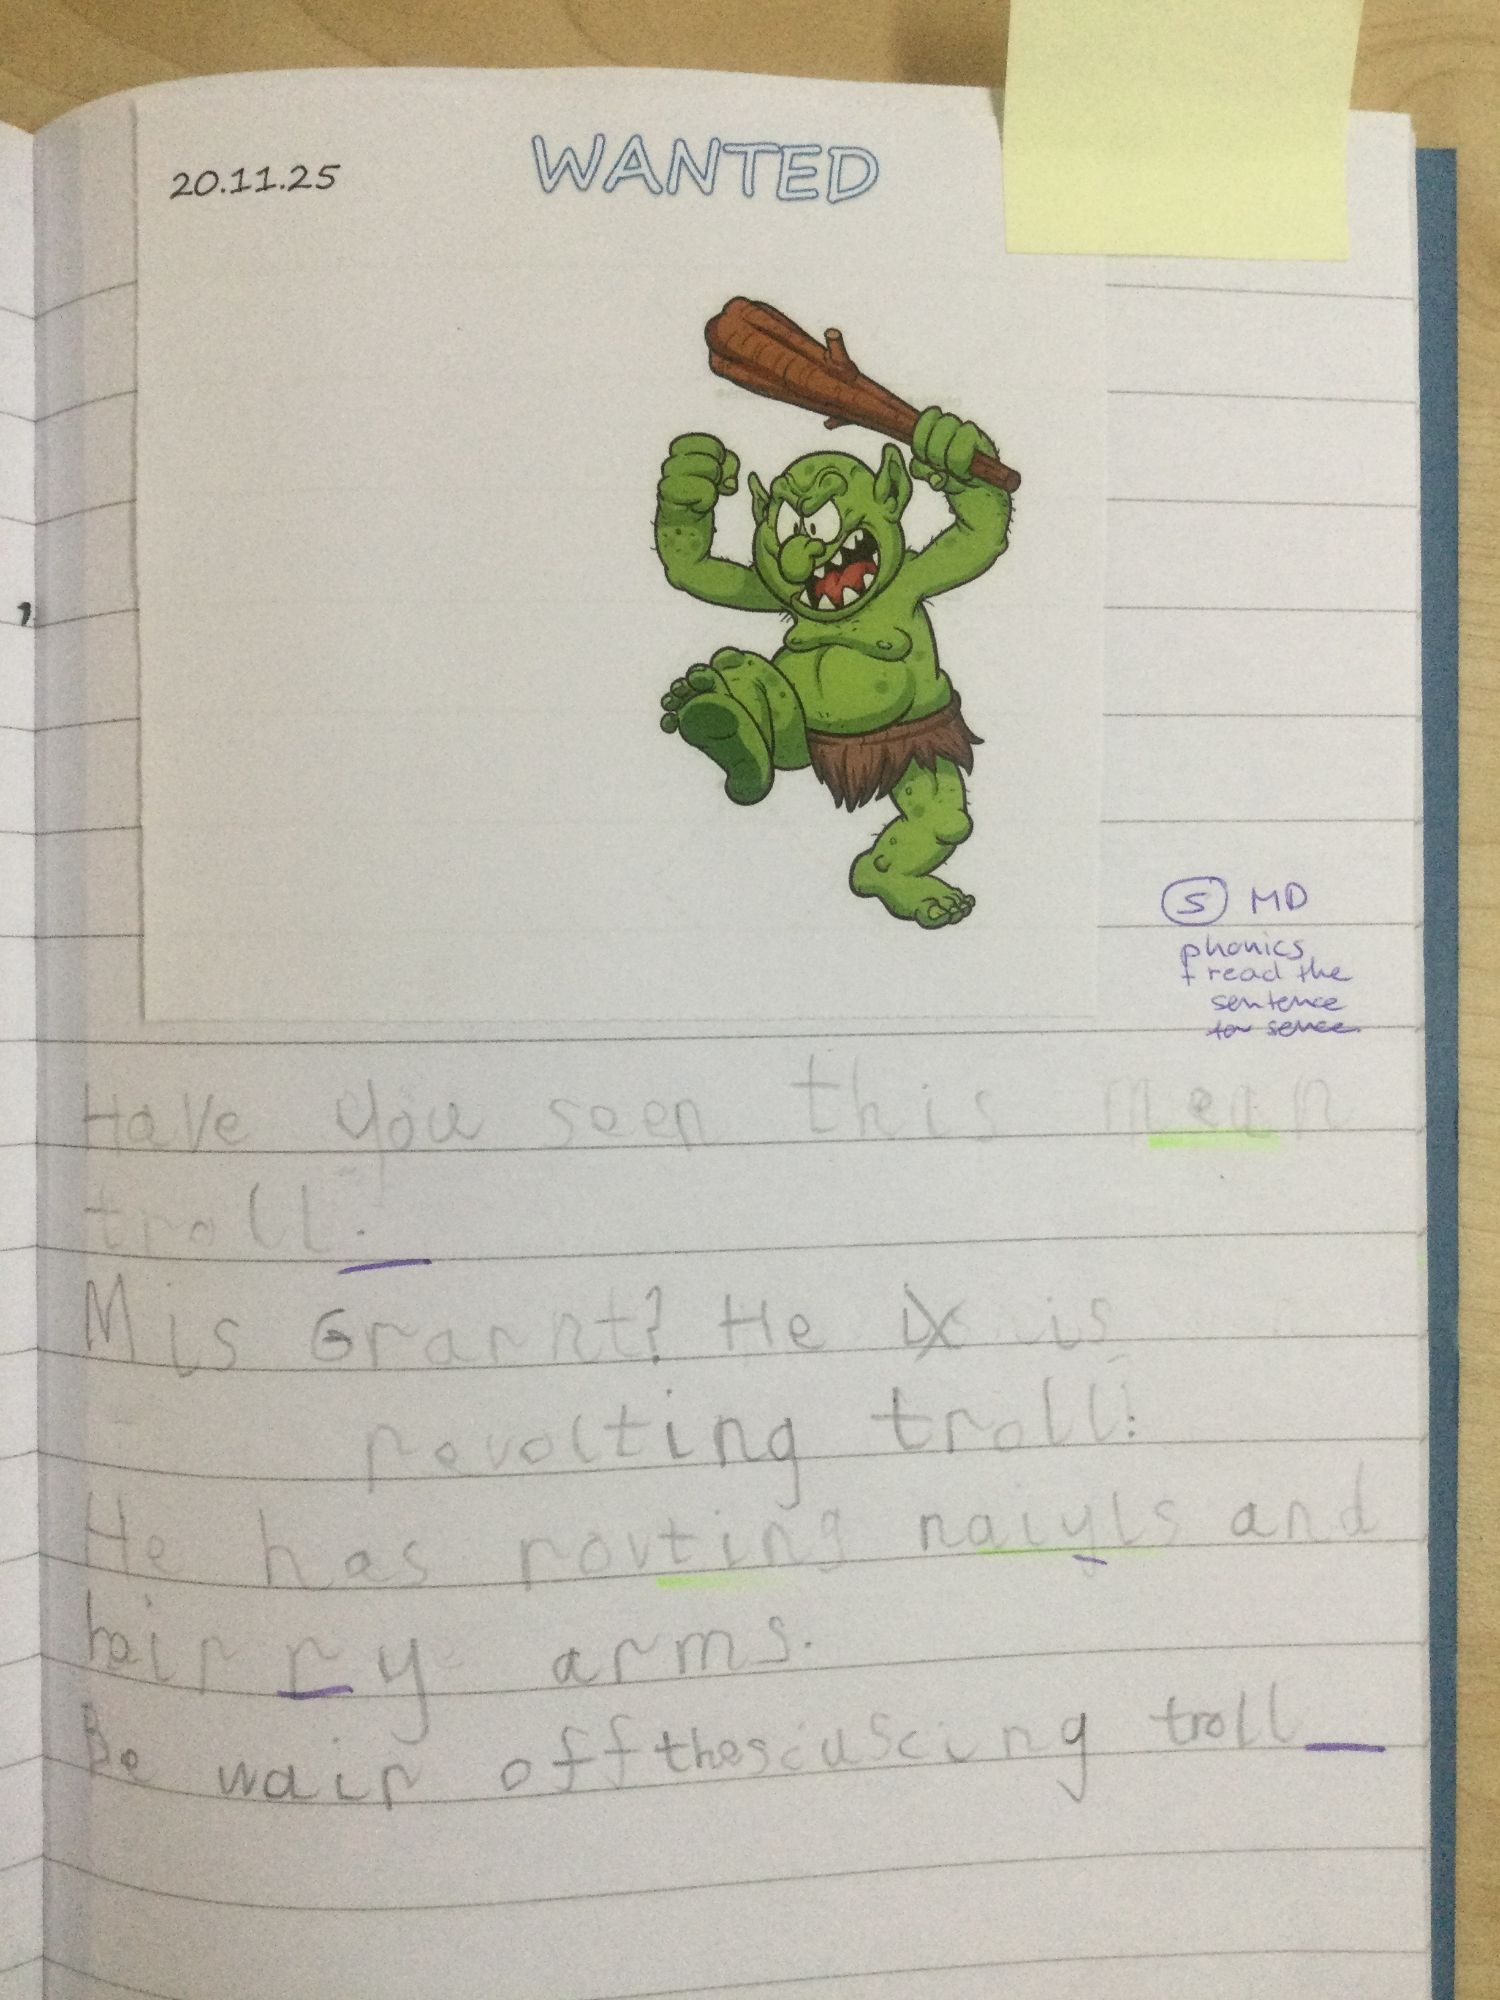 20.11.25 WANTED
,
(S) MD
phonics
+ read the
sentence
for sence.
Have you seen this mean
troll.
Mis Grarnt? He is is
revolting troll!
He has rovting naiyls and
hairry arms.
Be wair off thesciuscing troll